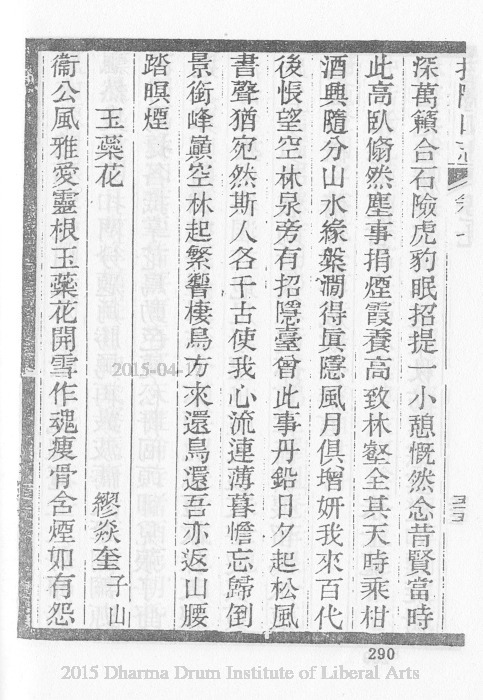 招隱山志 卷七
深萬籟合石險虎豹眠招提一小憩慨然念昔賢當時
此高臥翛然塵事捐煙霞養高致林壑全其天時乘柑
酒興隨分山水緣槃澗得眞隱風月俱增妍我來百代
後悵望空林泉旁有招隱臺曾此事丹鉛日夕起松風
書聲猶宛然斯人各千古使我心流連薄暮憺忘歸倒
景銜峰巔空林起繁響棲鳥方來還鳥還吾亦返山腰
踏暝煙
玉蘂花 繆焱奎子山
衞公風雅愛靈根玉蘂花開雪作魂瘦骨含煙如有怨
290
2015-04-1
2015 Dharma Drum Institute of Liberal Arts